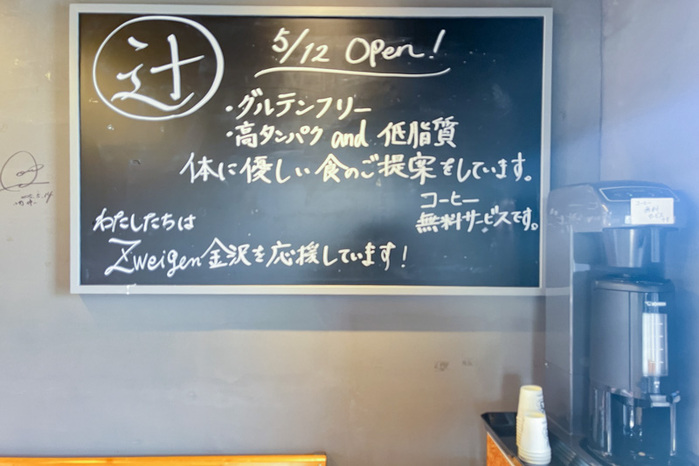 辻
5/12 Open!
・グルテンフリー
・高タンパク and 低脂質
体に優しい食のご提案をしています。
コーヒー
無料サービスです。
わたしたちは
Zweigen金沢を応援しています!